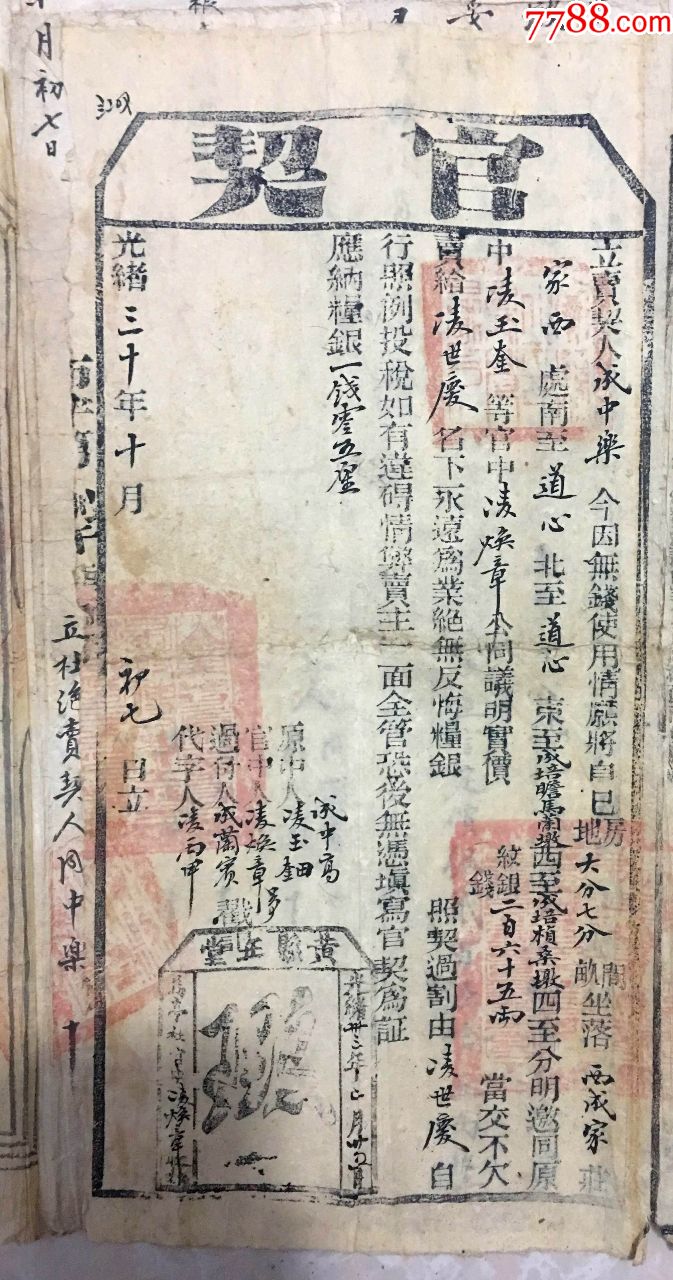 7788.com
官契
立賣契人成中樂 今因無錢使用情願將自己房地大分七分間畝坐落 西成家 莊
家西 處南至 道心 北至 道心 東至成培瞻馬蘭墩西至成培楨桑墩四至分明邀同原
中 凌玉奎 等官中凌煥章公同議明實價 紋銀錢二百六十五兩 當交不欠
賣給凌世慶 名下永遠為業絕無反悔糧銀 照契過割由凌世慶 自
行照例投稅如有違碍情弊賣主一面全管恐後無憑填寫官契為証
應納糧銀一錢零五厘
成中萬
原中人凌玉奎
官中人凌煥章
過付人成蘭賓
代字人凌丙甲 戳
光緒三十年十月 初七 日立
黃縣正堂
光緒卅三年
凌煥章
立杜絕賣契人同中樂 十
月初七日